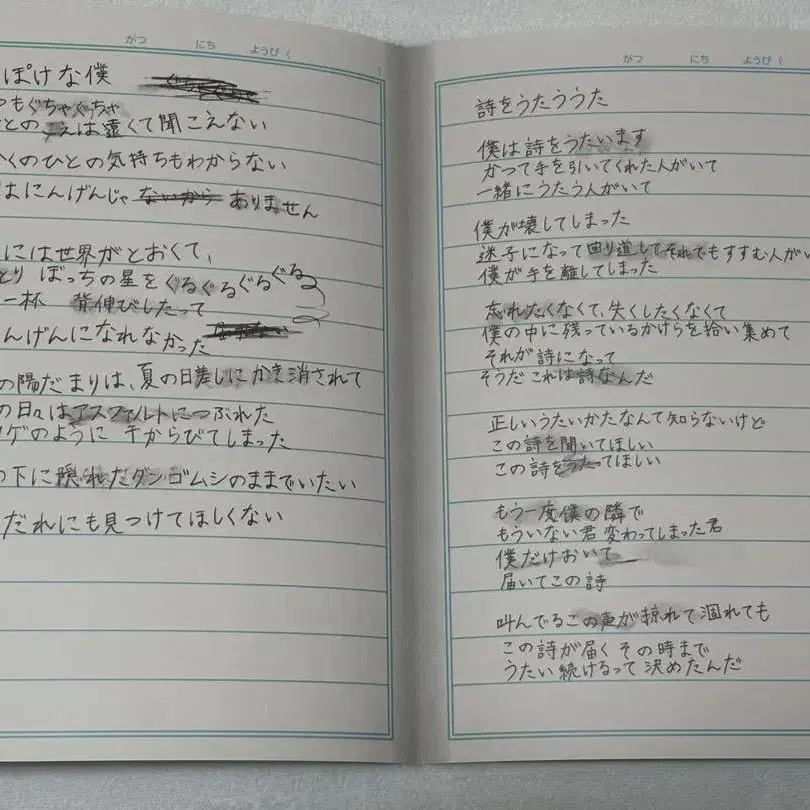 がつ にち ようび(
ぽけな僕
つもぐちゃぐっちゃ
との こえは遠くて聞こえない
くのひとの気持ちもわからない
はにんげんじゃ ないから ありません
には世界がとおくて、
とり ぼっちの星をぐるぐるぐるぐる
一杯 背伸びしたって
んげんになれなかった
の陽だまりは、夏の日差しにかき消されて
の日々はアスファルトにつぶれた
カゲのように 干からびてしまった
の下に隠れだダンゴムシのままでいたい
だれにも見つけてほしくない
がつ にち ようび(
詩をうたううた
僕は詩をうたいます
かつて手を引いてくれた人がいて
一緒にうたう人がいて
僕が壊してしまった
迷子になって回り道してそれでもすすむ人がい
僕が手を離してしまった
忘れたくなくて、失くしたくなくて
僕の中に残っているかけらを拾い集めて
それが詩になって
そうだ これは詩なんだ
正しいうたいかたなんて知らないけど
この詩を聞いてほしい
この詩をうたってほしい
もう一度僕の隣で
もういない君 変わってしまった君
僕だけおいて
届いてこの詩
叫んでるこの声が掠れて涸れても
この詩が届く その時まで
うたい続けるって 決めたんだ